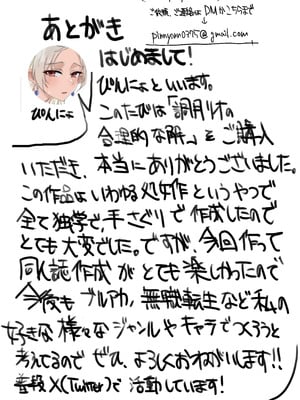 ご依頼、ご連絡は DMかこちらまで
pinnyonn0375@gmail.com
あとがき
はじめまして!
ぴんにょといいます。
ぴんにょ
このたびは「調月リオの
合理的な解」をご購入
いただき、本当にありがとうございました。
この作品はいわゆる処女作というやつで
全て独学で、手さぐりで作成したので
とても大変でした。ですが、今回作って
同人誌作成がとても楽しかったので
今後もブルアカ、無職転生など私の
好きな様々なジャンルやキャラでつくろうと
考えてるのでぜひ、よろしくおねがいします!!
普段X(Twitter)で活動しています!